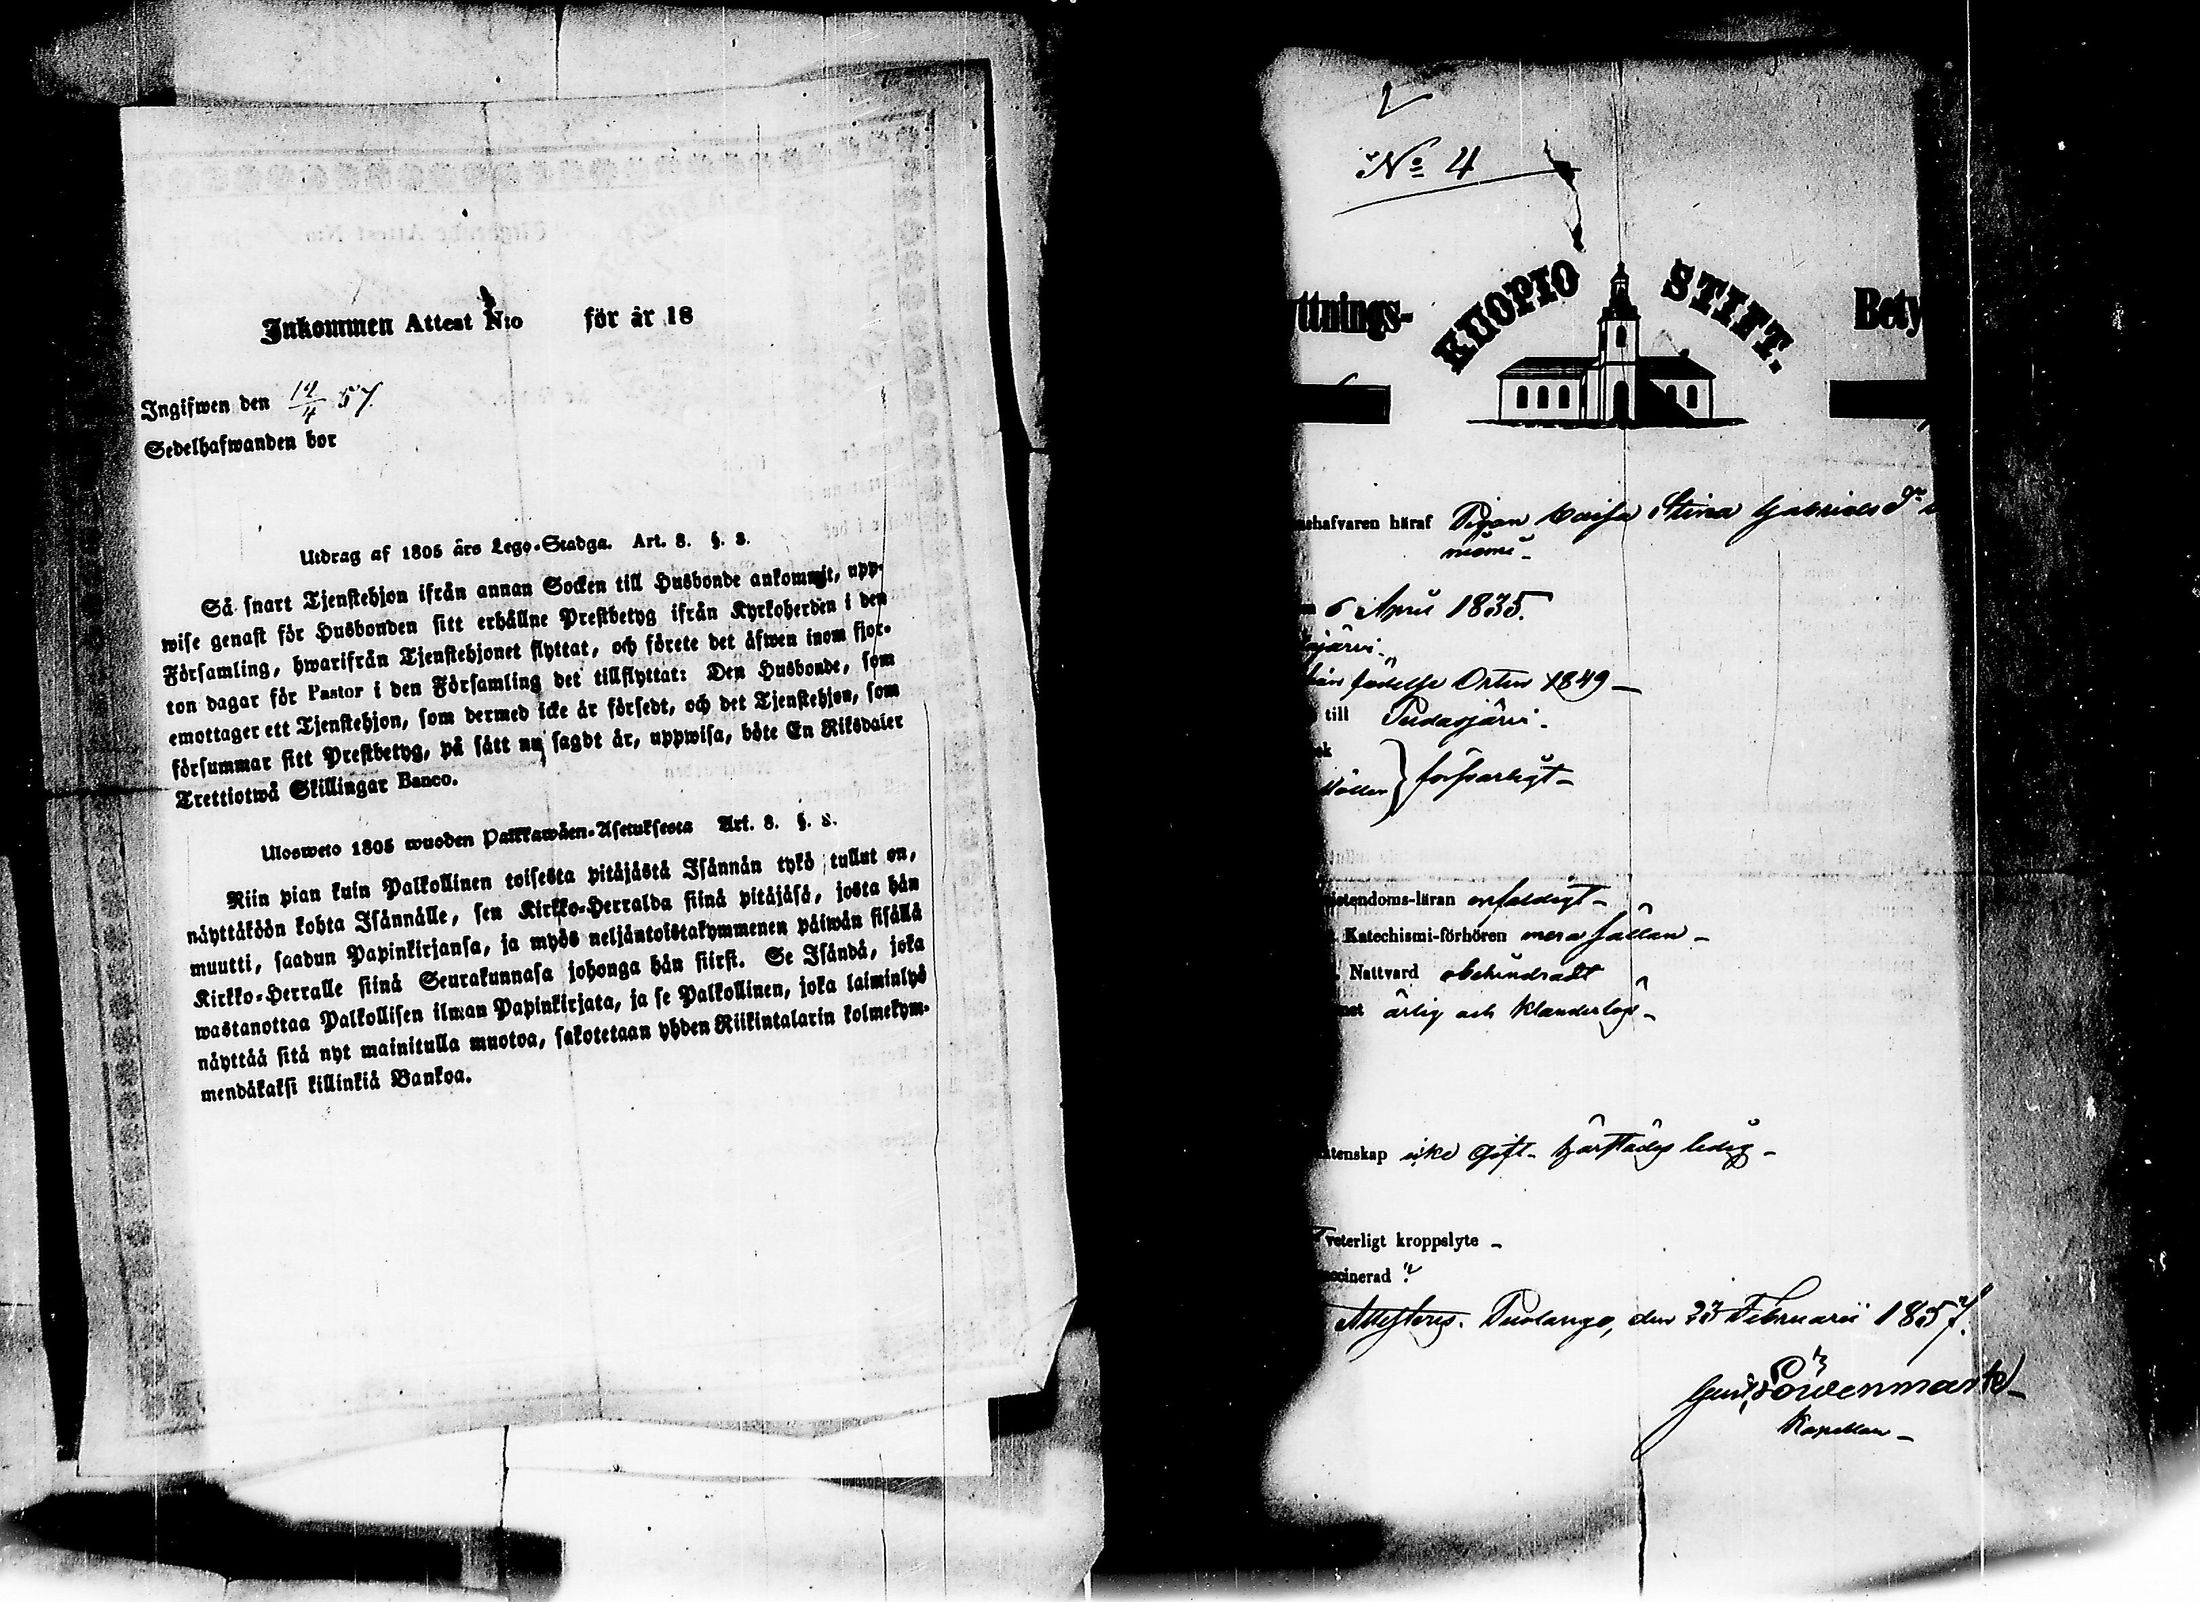 Inkommen Attest N:o för år 18
Ingifwen den 19/4 57.
Sedelhafwanden bor
Utdrag af 1805 års Lego-Stadga. Art. 8. §. 3.
Så snart Tjenstehjon ifrån annan Socken till Husbonde ankommit, upp-
wise genast för Husbonden sitt erhållne Prestbetyg ifrån Kyrkoherden i den
Församling, hwarifrån Tjenstehjonet flyttat, och förete det äfwen inom fjor-
ton dagar för Pastor i den Församling det tillflyttat: Den Husbonde, som
emottager ett Tjenstehjon, som dermed icke är försedt, och det Tjenstehjon, som
försummar sitt Prestbetyg, på sått nu sagdt är, uppwisa, böte En Riksdaler
Trettiotwå Skillingar Banco.
Ulosweto 1805 wuoden Palkkawäen-Asetuksesta Art. 8. §. 3.
Niin pian kuin Palkollinen toisesta pitäjästä Isännän tykö tullut on,
näyttäköön kohta Isännälle, sen Kirkko-Herralda siinä pitäjäsä, josta hän
muutti, saadun Papinkirjansa, ja myös neljäntoistakymmenen päiwän sisällä
Kirkko-Herralle siinä Seurakunnasa johonga hän siirsi. Se Isändä, joka
wastanottaa Palkollisen ilman Papinkirjata, ja se Palkollinen, joka laiminlyö
näyttää sitä nyt mainitulla muotoa, sakotetaan yhden Riikintalarin kolmekym-
mendäkaksi killinkiä Bankoa.
No 4
yttnings- KUOPIO STIFT. Bety
nehafvaren häraf Pigan Caisa Stina Gabriels Dr
6 April 1835.
ajärvi
från födelse Orten 1849
till Pudasjärvi
försvarligt
istendoms-läran enfaldigt
Katechismi-förhören mera sällan
Nattvard obehindradt
net ärlig och klanderlös
ktenskap icke Gift. härstädes ledig
veterligt kroppslyte
accinerad
Attesteras. Puolango, den 23 Februarii 1857.
Löwenmark
Kapellan